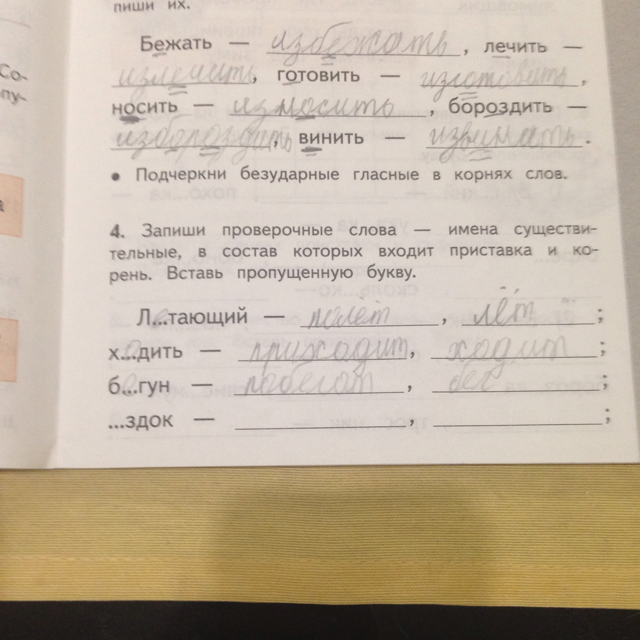 пиши их.
Бежать — избежать, лечить —
излечить, готовить — изготовить,
носить — износить, бороздить —
избороздить, винить — извинить.
• Подчеркни безударные гласные в корнях слов.
Со-
пу-
а
4. Запиши проверочные слова — имена существи-
тельные, в состав которых входит приставка и ко-
рень. Вставь пропущенную букву.
Л...тающий — полёт, лёт;
х...дить — приходит, ходит;
б...гун — побегат, бег;
...здок — , ;